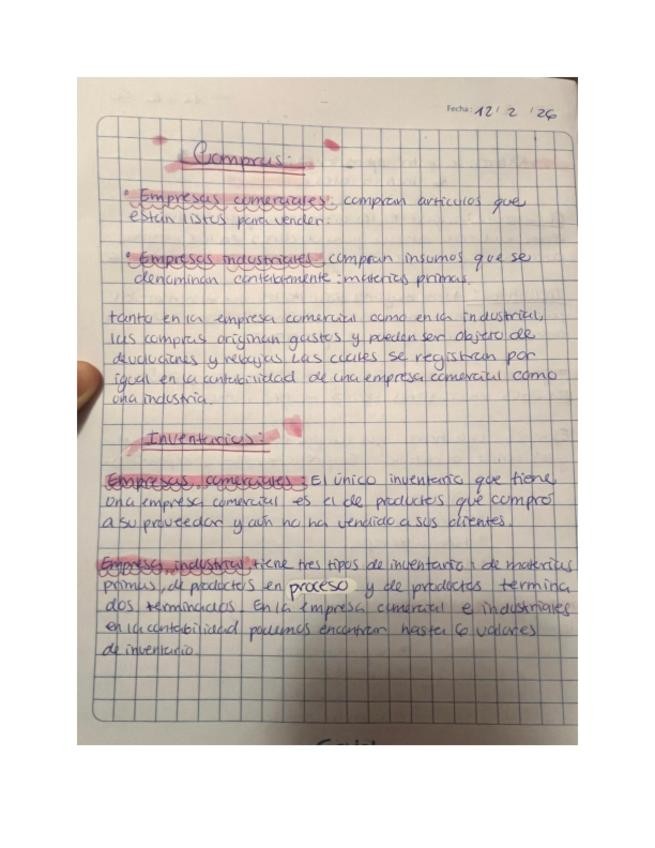 Fecha: 12 / 2 / 26
Compras:
• Empresas comerciales: compran articulos que
están listos para vender.
• Empresas industriales: compran insumos que se
denominan contablemente: materias primas.
tanto en la empresa comercial como en la industrial,
las compras originan gastos y pueden ser objeto de
devoluciones y rebajas las cuales se registran por
igual en la contabilidad de una empresa comercial como
una industria.
Inventarios:
Empresas comerciales: El único inventario que tiene
una empresa comercial es el de productos que compró
a su proveedor y aún no ha vendido a sus clientes.
Empresa industrial tiene tres tipos de inventario: de materias
primas, de productos en proceso y de productos termina
dos terminados. En la empresa comercial e industriales
en la contabilidad podemos encontrar hasta 6 valores
de inventario.